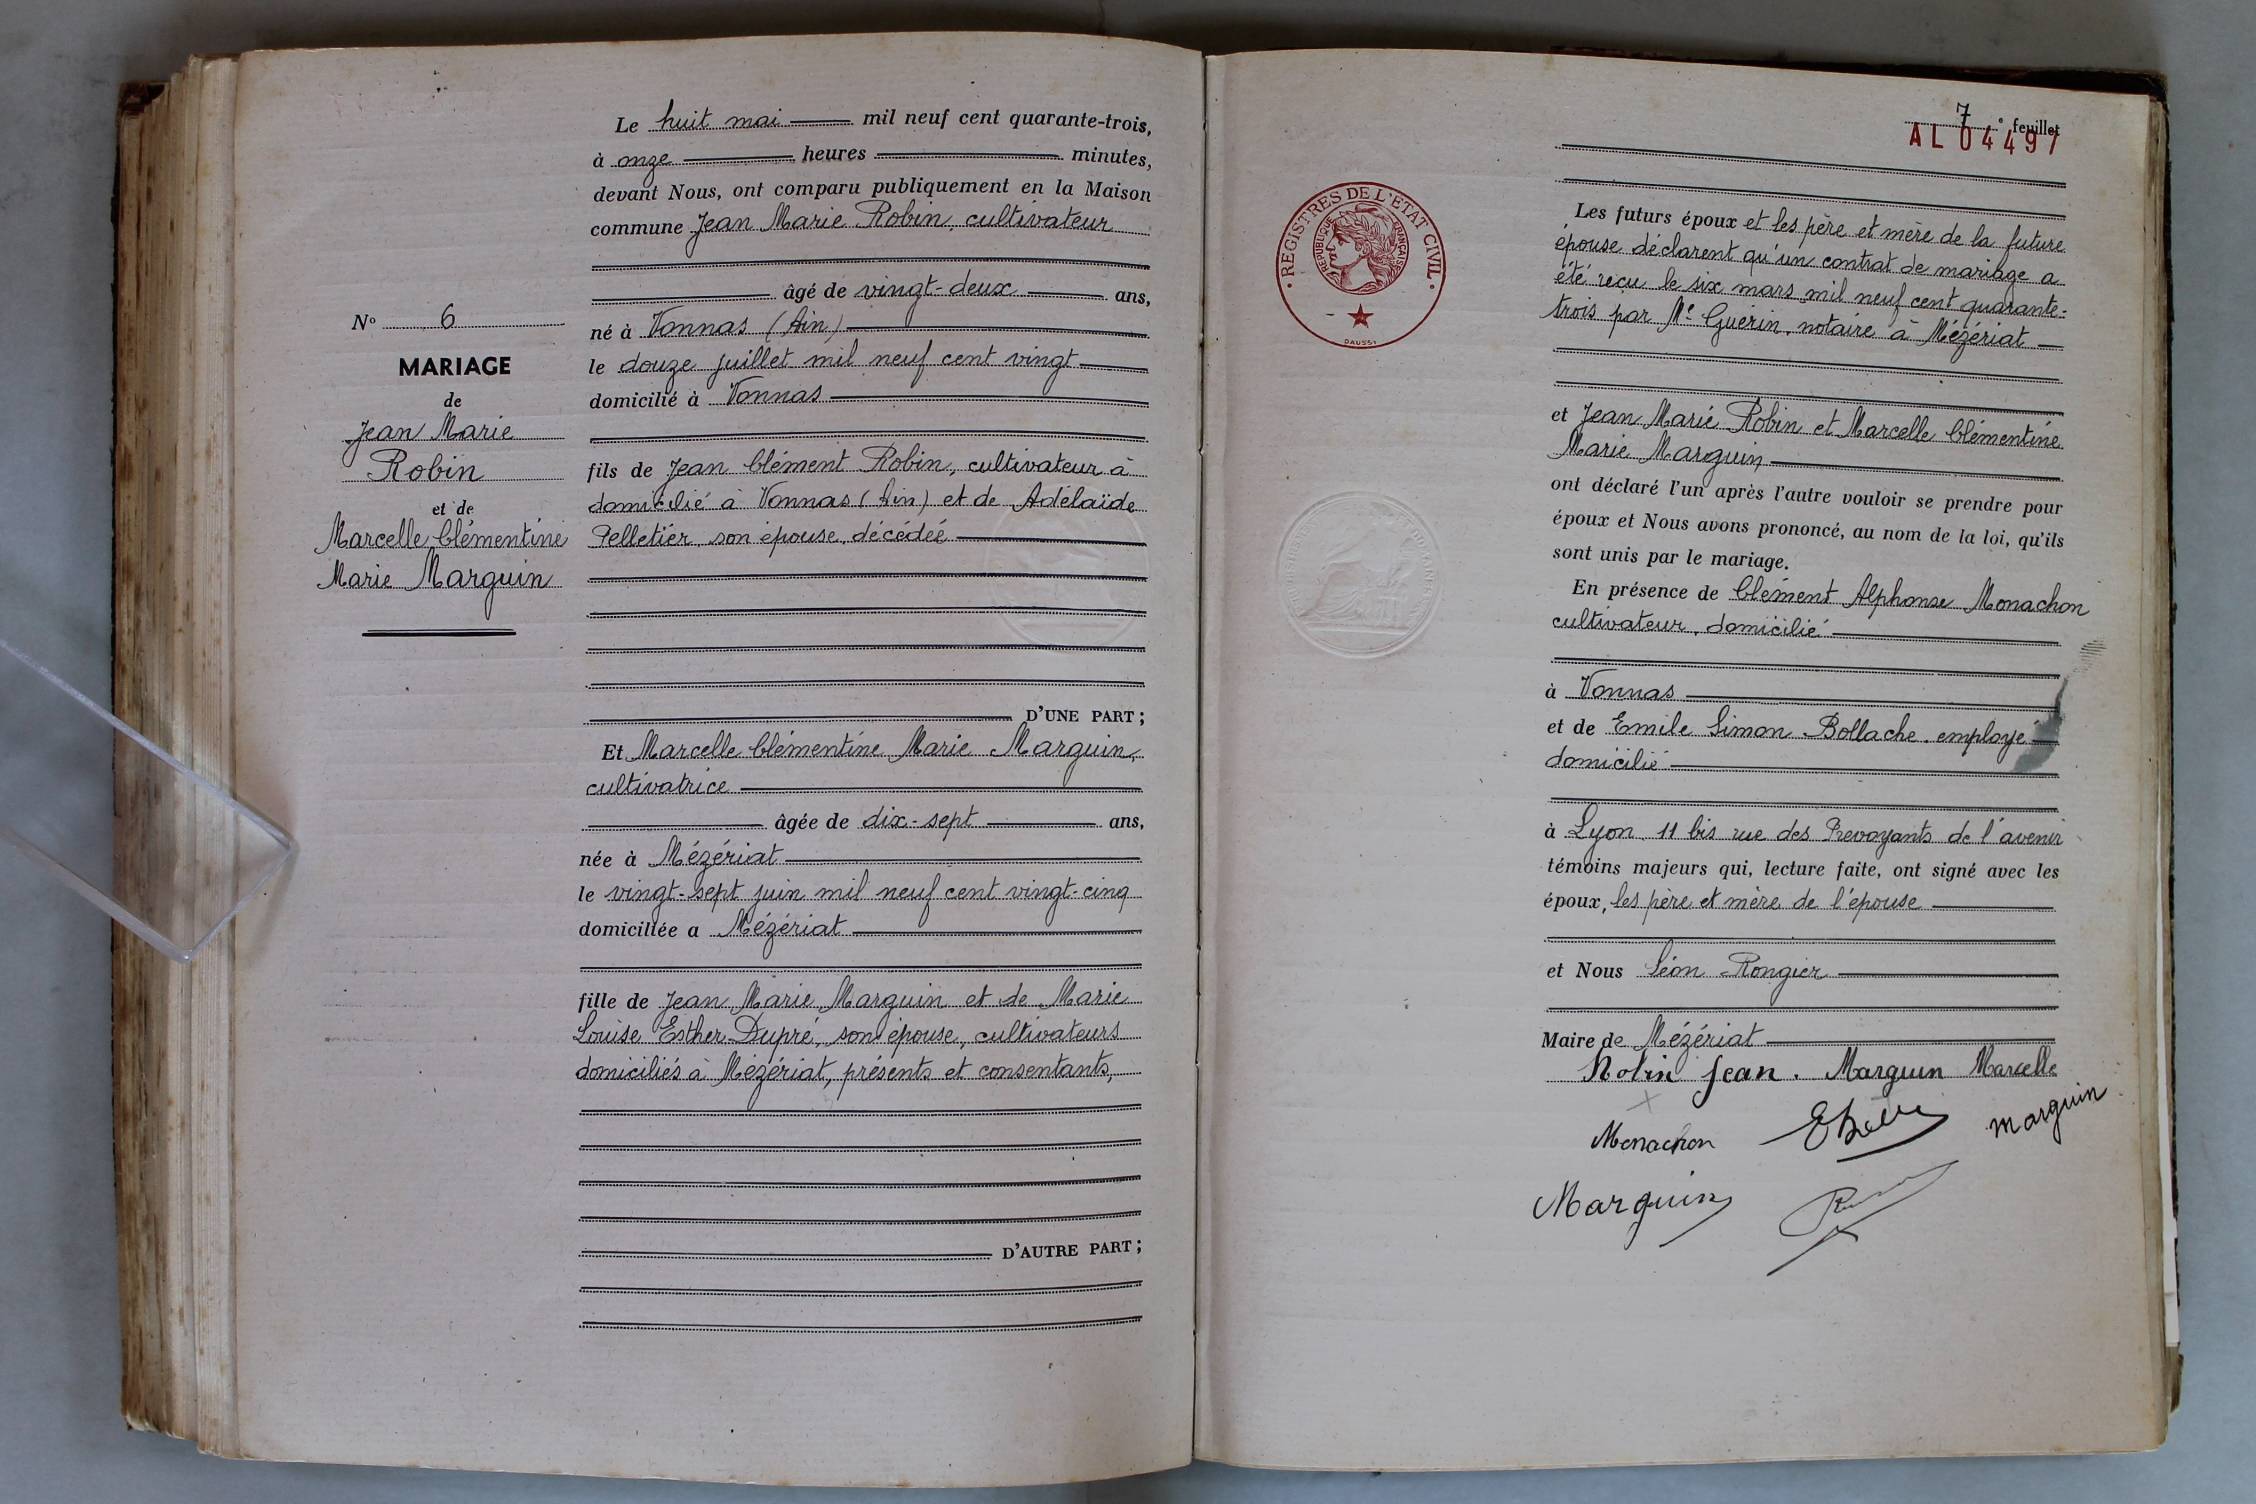 Le huit mai mil neuf cent quarante-trois,
à onze heures minutes,
devant Nous, ont comparu publiquement en la Maison
commune Jean Marie Robin, cultivateur
âgé de vingt-deux ans,
né à Vonnas (Ain)
le douze juillet mil neuf cent vingt
domicilié à Vonnas
fils de Jean Clément Robin, cultivateur à
domicilié à Vonnas (Ain) et de Adélaïde
Pelletier, son épouse, décédée
D'UNE PART ;
Et Marcelle Clémentine Marie Marguin,
cultivatrice
âgée de dix-sept ans,
née à Mézériat
le vingt-sept juin mil neuf cent vingt-cinq
domiciliée a Mézériat
fille de Jean Marie Marguin et de Marie
Louise Esther Dupré, son épouse, cultivateurs
domiciliés à Mézériat, présents et consentants,
D'AUTRE PART ;
No 6
MARIAGE
de
Jean Marie
Robin
et de
Marcelle Clémentine
Marie Marguin
7e feuillet
AL 04497
REGISTRES DE L'ETAT CIVIL
REPUBLIQUE FRANÇAISE
DAUSSY
Les futurs époux et les père et mère de la future
épouse déclarent qu'un contrat de mariage a
été reçu le six mars mil neuf cent quarante-
trois par Me Guerin, notaire à Mézériat
et Jean Marie Robin et Marcelle Clémentine
Marie Marguin
ont déclaré l'un après l'autre vouloir se prendre pour
époux et Nous avons prononcé, au nom de la loi, qu'ils
sont unis par le mariage.
En présence de Clément Alphonse Monachon
cultivateur, domicilié
à Vonnas
et de Emile Simon Bollache, employé
domicilié
à Lyon 11 bis rue des Prevoyants de l'avenir
témoins majeurs qui, lecture faite, ont signé avec les
époux, les père et mère de l'épouse
et Nous Léon Rongier
Maire de Mézériat
Robin Jean. Marguin Marcelle
Monachon marguin
Marguin